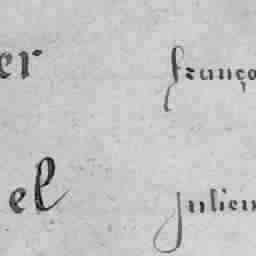 er franço
el julien